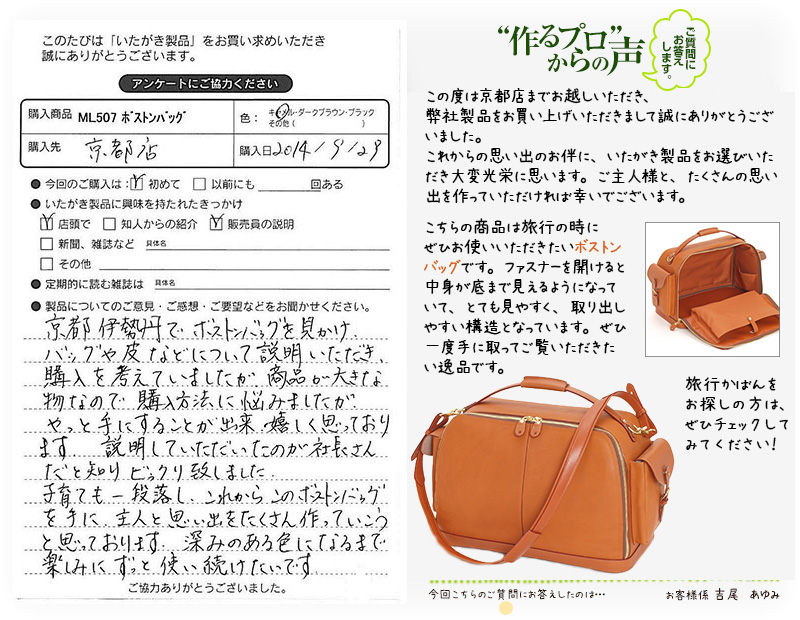 このたびは「いたがき製品」をお買い求めいただき
誠にありがとうございます。
アンケートにご協力ください
購入商品 ML507 ボストンバッグ 色： キャメル・ダークブラウン・ブラック
その他（ ）
購入先 京都店 購入日 2014/9/29
● 今回のご購入は： 初めて 以前にも 回ある
● いたがき製品に興味を持たれたきっかけ
店頭で 知人からの紹介 販売員の説明
新聞、雑誌など 具体名
その他
● 定期的に読む雑誌は 具体名
● 製品についてのご意見・ご感想・ご要望などをお聞かせください。
京都伊勢丹で、ボストンバッグを見かけ、
バッグや皮などについて説明いただき、
購入を考えていましたが、商品が大きな
物なので購入方法に悩みましたが、
やっと手にすることが出来、嬉しく思っており
ます。説明していただいたのが社長さん
だと知りビックリ致しました。
子育ても一段落し、これからこのボストンバッグ
を手に、主人と思い出をたくさん作っていこう
と思っております。深みのある色になるまで
楽しみにずっと使い続けたいです。
ご協力ありがとうございました。
“作るプロ”
からの声
ご質問に
お答え
します。
この度は京都店までお越しいただき、
弊社製品をお買い上げいただきまして誠にありがとうござ
いました。
これからの思い出のお伴に、いたがき製品をお選びいた
だき大変光栄に思います。ご主人様と、たくさんの思い
出を作っていただければ幸いでございます。
こちらの商品は旅行の時に
ぜひお使いいただきたいボストン
バッグです。ファスナーを開けると
中身が底まで見えるようになって
いて、とても見やすく、取り出し
やすい構造となっています。ぜひ
一度手に取ってご覧いただきた
い逸品です。
旅行かばんを
お探しの方は、
ぜひチェックして
みてください！
今回こちらのご質問にお答えしたのは… お客様係 吉尾 あゆみ